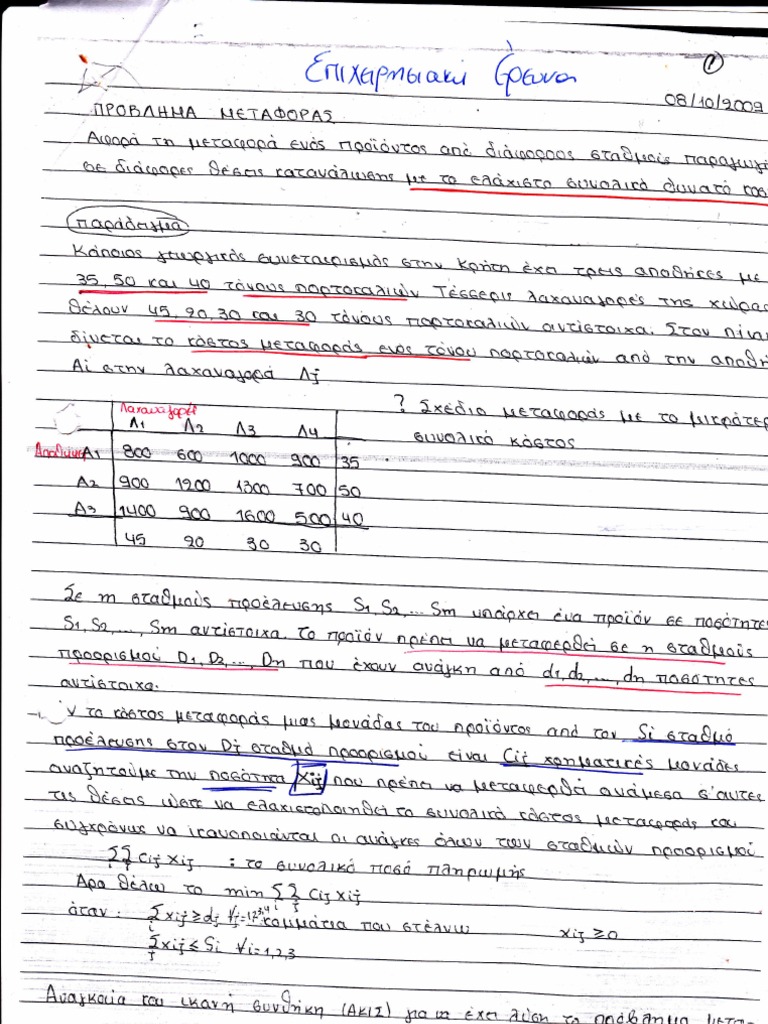 Επιχειρησιακή Έρευνα
1
08/10/2009
ΠΡΟΒΛΗΜΑ ΜΕΤΑΦΟΡΑΣ
Αφορά τη μεταφορά ενός προϊόντος από διάφορους σταθμούς παραγωγή
σε διάφορες θέσεις κατανάλωσης με το ελάχιστο συνολικό δυνατό κοσ
παράδειγμα
Κάποιος γεωργικός συνεταιρισμός στην Κρήτη έχει τρεις αποθήκες με
35, 50 και 40 τόνους πορτοκαλιών Τέσσερις λαχαναγορές της χώρας
θέλουν 45, 20, 30 και 30 τόνους πορτοκαλιών αντίστοιχα. Στον πίνα
δίνεται το κόστος μεταφοράς ενός τόνου πορτοκαλιών από την αποθή
Ai στην λαχαναγορά Λj
Λαχαναγορές
? Σχέδιο μεταφοράς με το μικρότερ
Λ1 Λ2 Λ3 Λ4
συνολικό κόστος
Αποθήκες A1 800 600 1000 900 35
A2 900 1200 1300 700 50
A3 1400 900 1600 500 40
45 20 30 30
Σε m σταθμούς προέλευσης S1, S2, ... Sm υπάρχει ένα προϊόν σε ποσότητε
S1, S2, ..., Sm αντίστοιχα. Το προϊόν πρέπει να μεταφερθεί σε n σταθμούς
προορισμού D1, D2, ..., Dn που έχουν ανάγκη από d1, d2, ..., dn ποσότητες
αντίστοιχα.
ν το κόστος μεταφοράς μιας μονάδας του προϊόντος από τον Si σταθμό
προέλευσης στον Dj σταθμό προορισμού είναι Cij χρηματικές μονάδες
αναζητούμε την ποσότητα Xij που πρέπει να μεταφερθεί ανάμεσα σ'αυτες
τις θέσεις ώστε να ελαχιστοποιηθεί το συνολικό κόστος μεταφοράς και
συγχρόνως να ικανοποιούνται οι ανάγκες όλων των σταθμών προορισμού
Σ Σ Cij Xij : το συνολικό ποσό πληρωμής
Άρα θέλω το min Σ Σ Cij Xij
i j
όταν : Σ xij ≥ dj ∀j=1,2,3,4 κομμάτια που στέλνω xij ≥ 0
i
Σ xij ≤ Si ∀i=1,2,3
j
Αναγκαία και ικανή συνθήκη (ΑΚΙΣ) για να έχει λύση το πρόβλημα μετα-